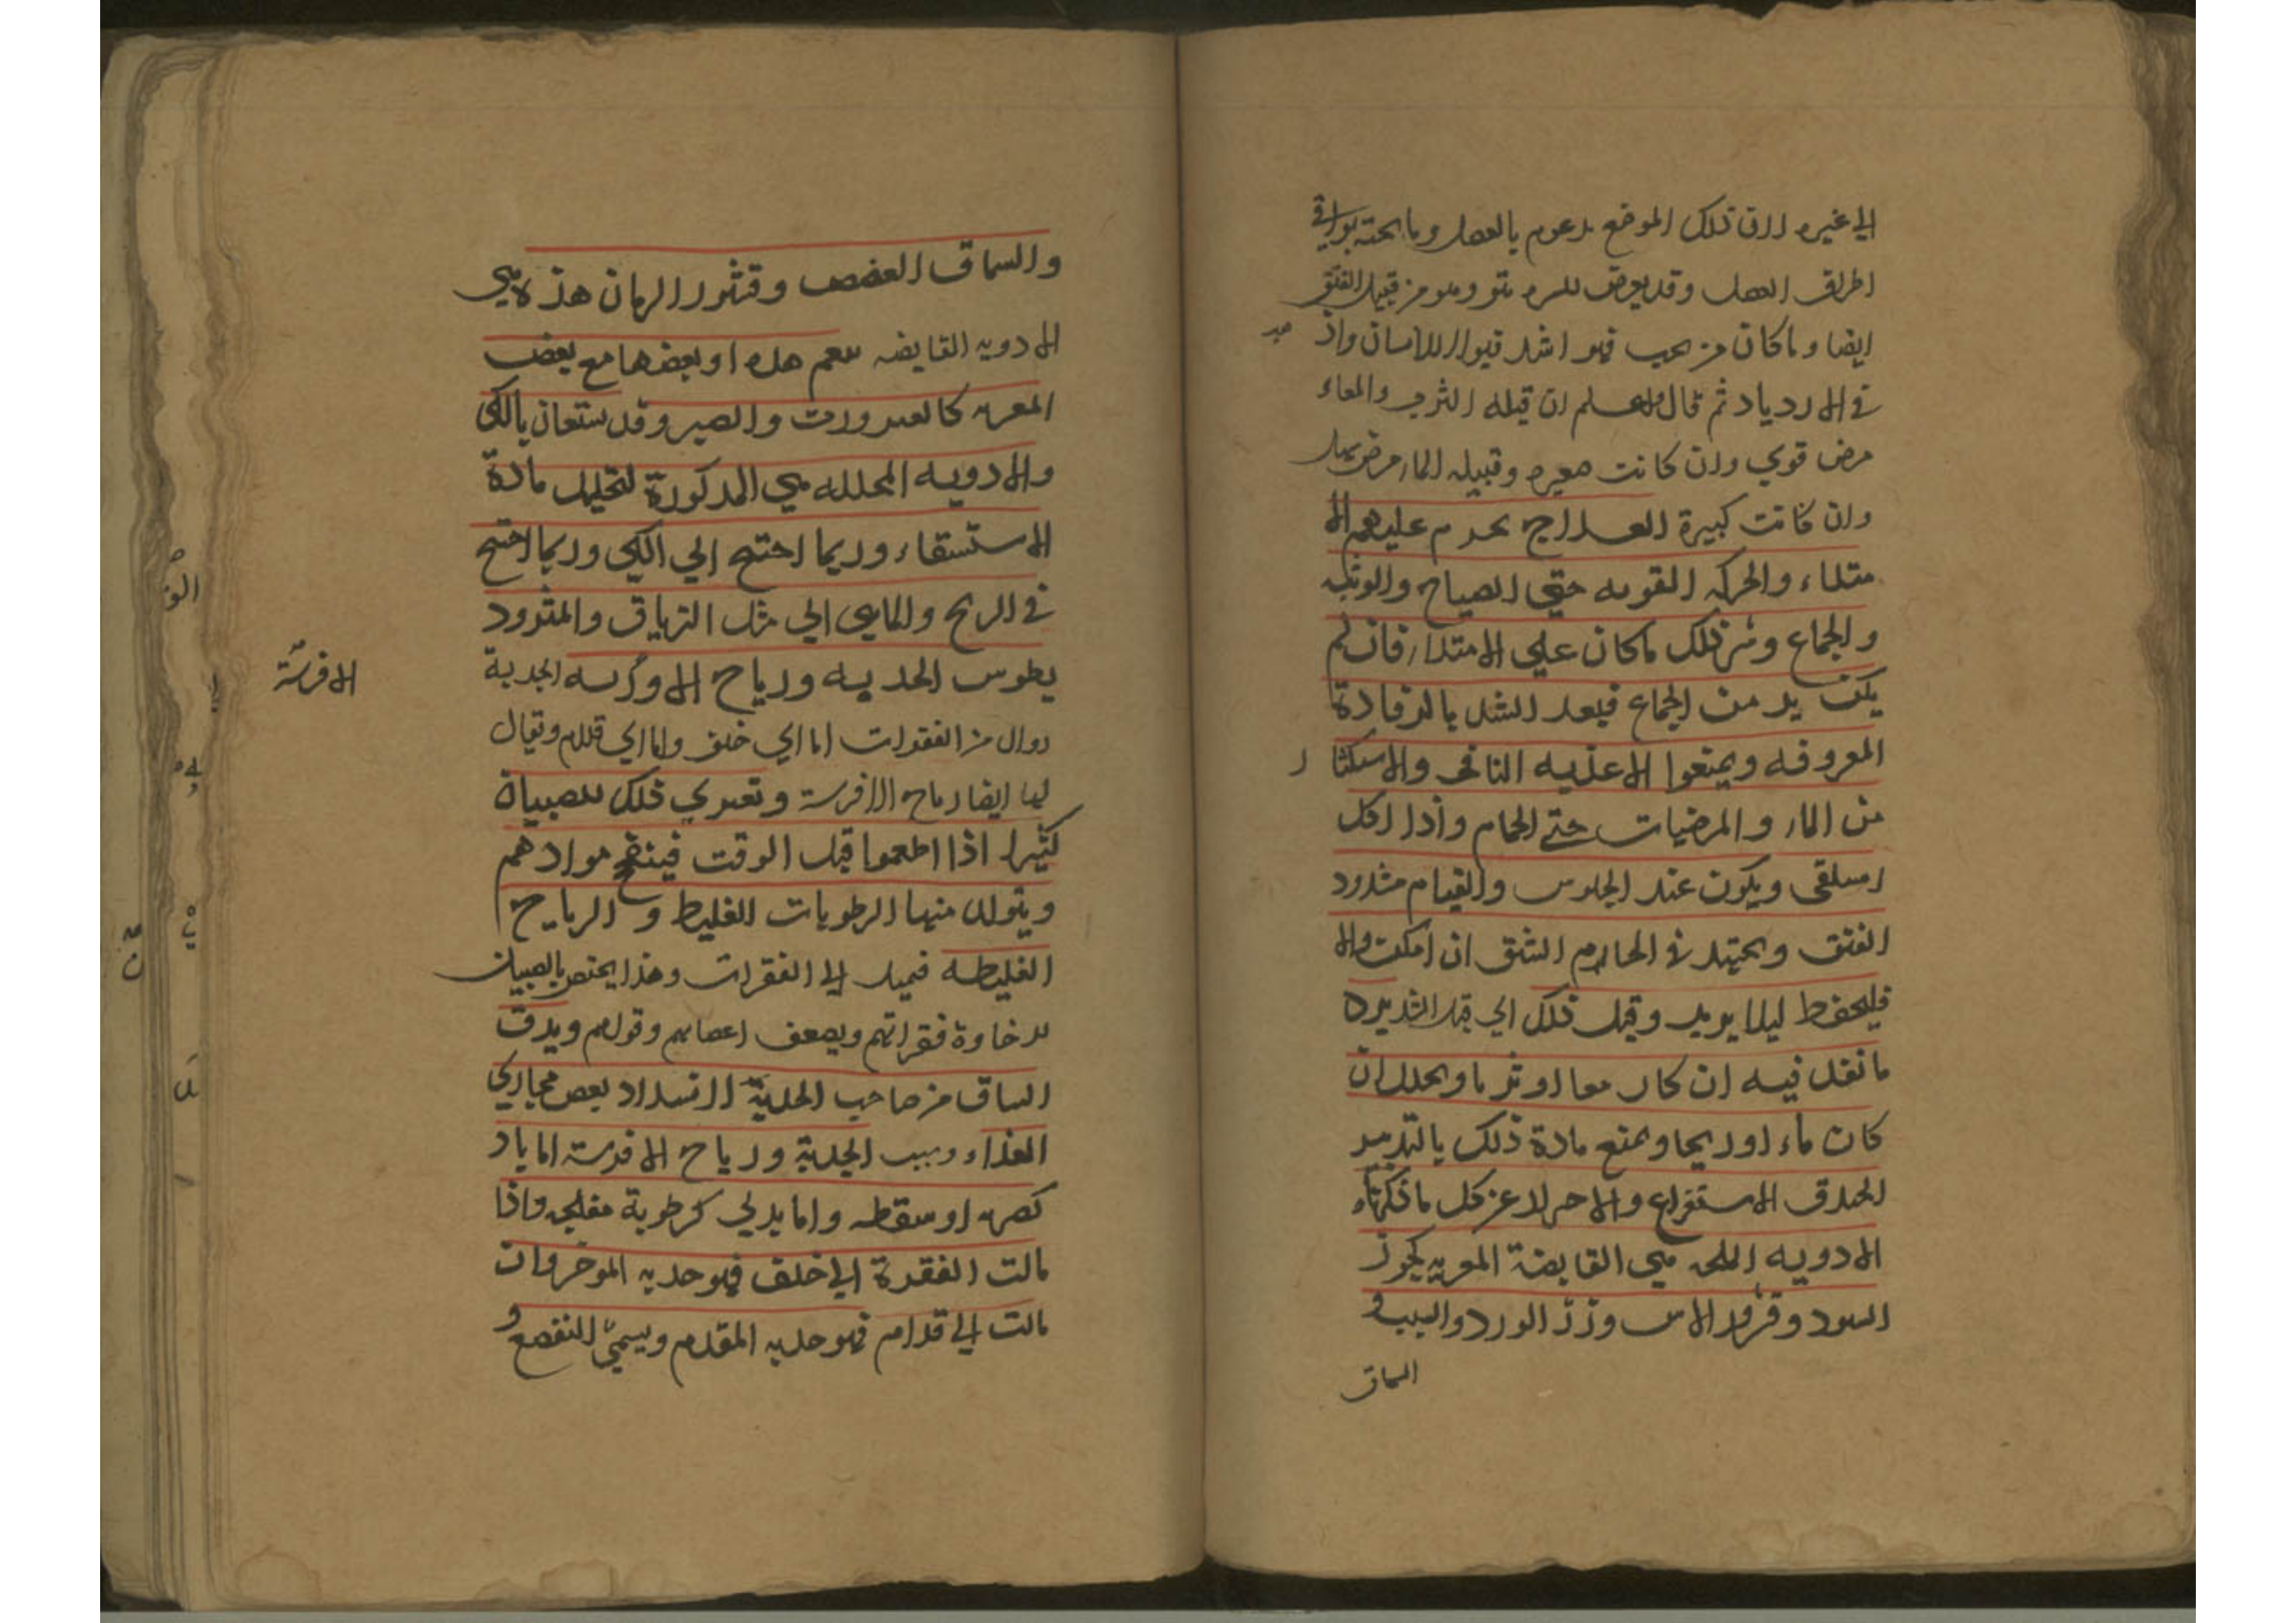 الي غيره لان ذلك الموضع مدعوم بالعصل وما تحته بوافي
اطراف العصل وقد يعرض للسره نتو وهو من قبيل الفتق
ايضا وما كان من تحت فهو اشد قبولا للاسان واز
في الازدياد ثم قال واعلم ان قيلة الثرب والمعاء
مرض قوي وان كانت صغيره وقبيله الماء مرض سهل
وان كانت كبيرة العلاج يحرم عليهم الا
متلاء والحركه القويه حتي الصياح والوثبه
والجماع وشر ذلك ما كان علي الامتلاء فان لم
يكن بد من الجماع فبعد الشد بالرفادة
المعروفه ويمنعوا الاغذيه النافخه والاستكثار
من الماء والمرخيات حتي الحمام واذا اكل
استلقي ويكون عند الجلوس والقيام مشدود
الفتق ويجتهد في الحام الشق ان امكن والا
فليحفظ ليلا يزيد وقبل ذلك الي قبل الشد يرد
ما نفل فيه ان كان معا او ثربا ويحلل ان
كان ماء او ريحا ويمنع مادة ذلك بالتدبير
الاستفراغ والاحتراز عن كل ما ذكرناه
الادويه التي هي القابضة المغريه كجوز
السرو وقشور الاس وزر الورد والسبب و
السماق
والسماق العفص وقشور الرمان هذه هي
الادويه القابضه هذه او بعضها مع بعض
المغريه كالعنزروت والصبر وقد يستعان بالكي
والادويه المحلله هي المذكورة لتحليل مادة
الاستسقاء وربما احتيج الي الكي وربما احتيج
في الريح والمايي الي مثل الترياق والمثرود
يطوس الحدبه ورياح الافرسه الحدبة
زوال من الفقرات اما الي خلف واما الي قدام ويقال
لها ايضا رياح الافرسة وتعتري ذلك للصبيان
كثيرا اذا اطعموا قبل الوقت فينفخ موادهم
ويتولد منها الرطوبات الغليظ و الرياح
الغليظه فيميل الي الفقرات وهذا يختص بالصبيان
لرخاوة فقراتهم وبضعف اعضايهم وقواهم ويدق
الساق من صاحب الحدبة لانسداد بعض مجاري
الغذاء وسبب الحدبة ورياح الافرسة اما باد
كضربه او سقطه واما بدني كرطوبة مفلجه واذا
مالت الفقرة الي خلف فهو حدبه الموخر وان
مالت الي قدام فهو حدبه المقدم ويسمي التقصع و
الافرسة